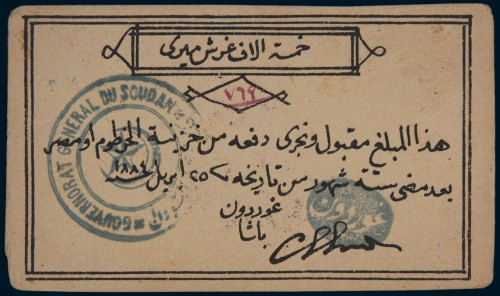 خمسة الاف غرش ميرى
٧٦٩
هذا المبلغ مقبول ونجرى دفعه من خزينة الخرطوم او مصر
بعد مضى ستة شهور من تاريخه ٢٥ ابريل سنة ١٨٨٤
غوردون
باشا
GOUVERNORAT GENERAL DU SOUDAN